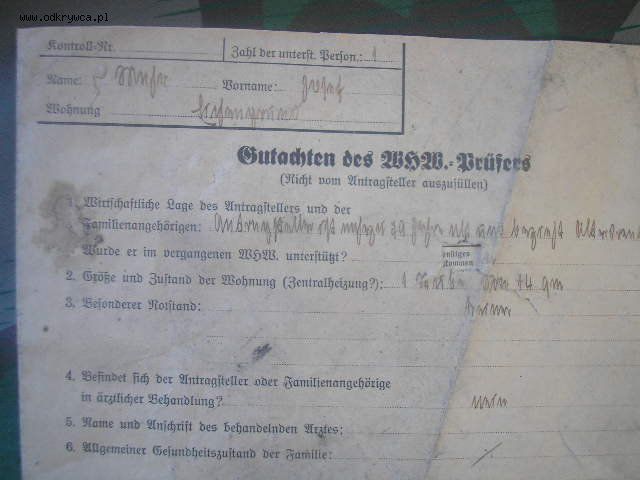 www.odkrywca.pl
Kontroll-Nr.
Zahl der unterst. Person.: 1
Name:
Vorname: Josef
Wohnung
Gutachten des WHW.-Prüfers
(Nicht vom Antragsteller auszufüllen)
1. Wirtschaftliche Lage des Antragstellers und der
Familienangehörigen: Antragsteller ist Jahre alt und bezieht
Wurde er im vergangenen WHW. unterstützt?
2. Größe und Zustand der Wohnung (Zentralheizung?): 1 Stube von 14 qm
3. Besonderer Notstand: keine
4. Befindet sich der Antragsteller oder Familienangehörige
in ärztlicher Behandlung? nein
5. Name und Anschrift des behandelnden Arztes:
6. Allgemeiner Gesundheitszustand der Familie: